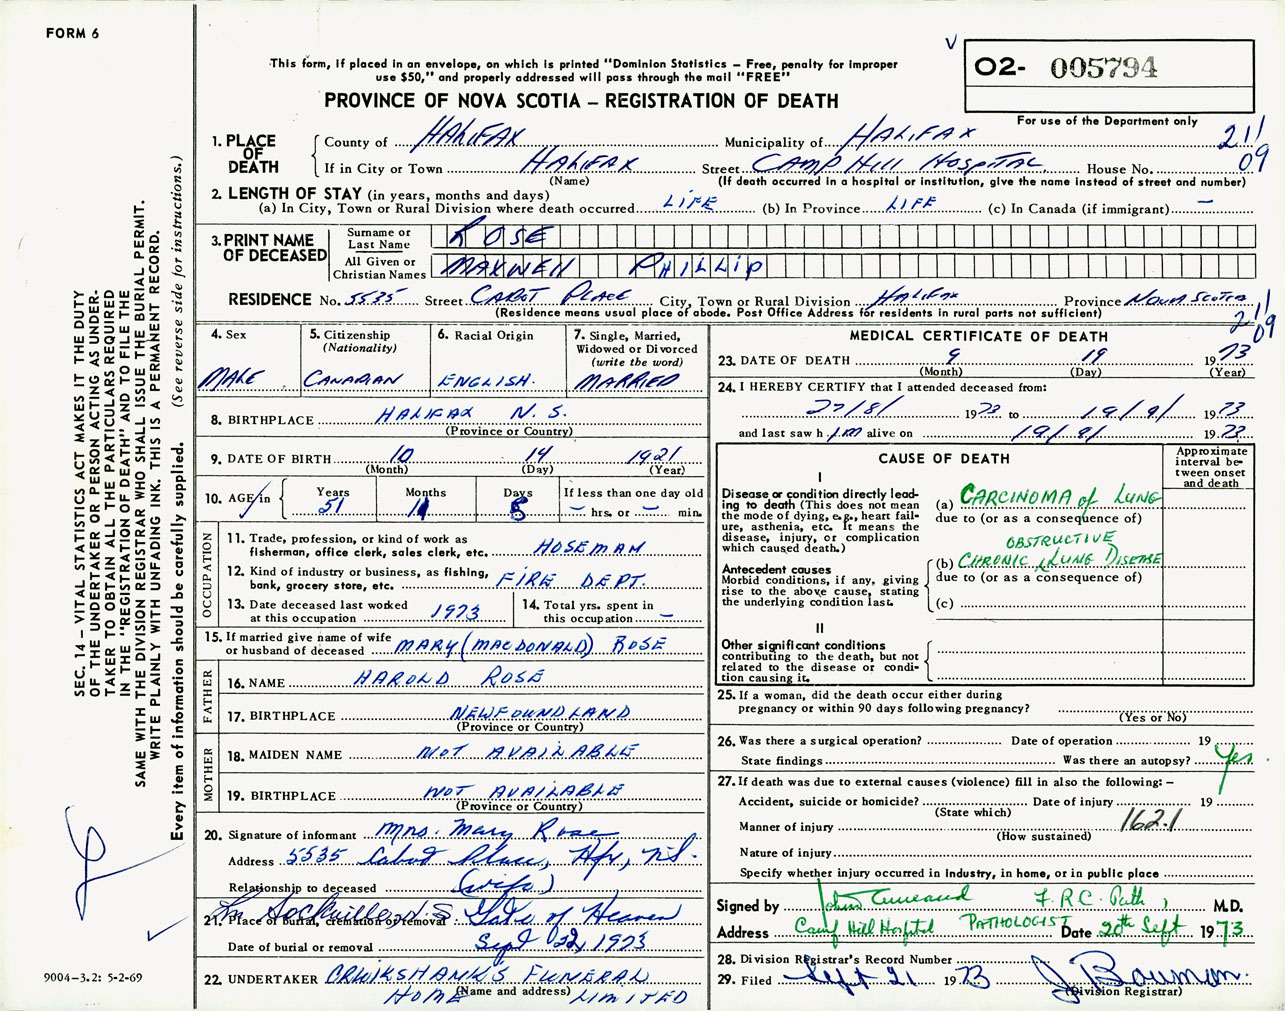 FORM 6
This form, if placed in an envelope, on which is printed "Dominion Statistics – Free, penalty for improper
use $50," and properly addressed will pass through the mail "FREE"
PROVINCE OF NOVA SCOTIA – REGISTRATION OF DEATH
O2- 005794
For use of the Department only
211
09
1. PLACE OF DEATH
County of HALIFAX Municipality of HALIFAX
If in City or Town HALIFAX Street CAMP HILL HOSPITAL House No.
(Name) (If death occurred in a hospital or institution, give the name instead of street and number)
2. LENGTH OF STAY (in years, months and days)
(a) In City, Town or Rural Division where death occurred LIFE (b) In Province LIFE (c) In Canada (if immigrant) —
3. PRINT NAME OF DECEASED
Surname or Last Name ROSE
All Given or Christian Names MAXWELL PHILLIP
RESIDENCE No. 5535 Street CABOT PLACE City, Town or Rural Division Halifax Province NOVA SCOTIA
(Residence means usual place of abode. Post Office Address for residents in rural parts not sufficient)
211
09
4. Sex
MALE
5. Citizenship
(Nationality)
CANADIAN
6. Racial Origin
ENGLISH.
7. Single, Married,
Widowed or Divorced
(write the word)
MARRIED
8. BIRTHPLACE HALIFAX N.S.
(Province or Country)
9. DATE OF BIRTH 10 14 1921
(Month) (Day) (Year)
10. AGE in Years 51 Months 11 Days 5
If less than one day old
— hrs. or — min.
OCCUPATION
11. Trade, profession, or kind of work as
fisherman, office clerk, sales clerk, etc. HOSEMAN
12. Kind of industry or business, as fishing,
bank, grocery store, etc. FIRE DEPT.
13. Date deceased last worked
at this occupation 1973
14. Total yrs. spent in
this occupation —
15. If married give name of wife
or husband of deceased MARY (MACDONALD) ROSE
FATHER
16. NAME HAROLD ROSE
17. BIRTHPLACE NEWFOUNDLAND
(Province or Country)
MOTHER
18. MAIDEN NAME NOT AVAILABLE
19. BIRTHPLACE NOT AVAILABLE
(Province or Country)
20. Signature of informant Mrs. Mary Rose
Address 5535 Cabot Place, Hfx, N.S.
Relationship to deceased (wife)
21. Place of burial, cremation or removal Sackville N.S. Gate of Heaven
Date of burial or removal Sept 22, 1973
22. UNDERTAKER CRUIKSHANK'S FUNERAL
HOME (Name and address) LIMITED
MEDICAL CERTIFICATE OF DEATH
23. DATE OF DEATH 9 19 1973
(Month) (Day) (Year)
24. I HEREBY CERTIFY that I attended deceased from:
27/8/ 1973 to 19/9/ 1973
and last saw h im alive on 19/9/ 1973
CAUSE OF DEATH
Approximate
interval be-
tween onset
and death
I
Disease or condition directly lead-
ing to death (This does not mean
the mode of dying, e.g., heart fail-
ure, asthenia, etc. It means the
disease, injury, or complication
which caused death.)
(a) CARCINOMA of LUNG
due to (or as a consequence of)
Antecedent causes
Morbid conditions, if any, giving
rise to the above cause, stating
the underlying condition last.
OBSTRUCTIVE
(b) CHRONIC LUNG DISEASE
due to (or as a consequence of)
(c)
II
Other significant conditions
contributing to the death, but not
related to the disease or condi-
tion causing it.
25. If a woman, did the death occur either during
pregnancy or within 90 days following pregnancy?
(Yes or No)
26. Was there a surgical operation? Date of operation 19
State findings Was there an autopsy? Yes
27. If death was due to external causes (violence) fill in also the following: –
Accident, suicide or homicide? Date of injury 19
(State which)
Manner of injury 162.1
(How sustained)
Nature of injury
Specify whether injury occurred in industry, in home, or in public place
Signed by F.R.C. Path, M.D.
Address Camp Hill Hospital PATHOLOGIST Date 20th Sept 1973
28. Division Registrar's Record Number
29. Filed Sept 21 1973 J Bauman
(Division Registrar)
SEC. 14 – VITAL STATISTICS ACT MAKES IT THE DUTY
OF THE UNDERTAKER OR PERSON ACTING AS UNDER-
TAKER TO OBTAIN ALL THE PARTICULARS REQUIRED
IN THE "REGISTRATION OF DEATH" AND TO FILE THE
SAME WITH THE DIVISION REGISTRAR WHO SHALL ISSUE THE BURIAL PERMIT.
WRITE PLAINLY WITH UNFADING INK. THIS IS A PERMANENT RECORD.
Every item of information should be carefully supplied. (See reverse side for instructions.)
9004-3.2: 5-2-69